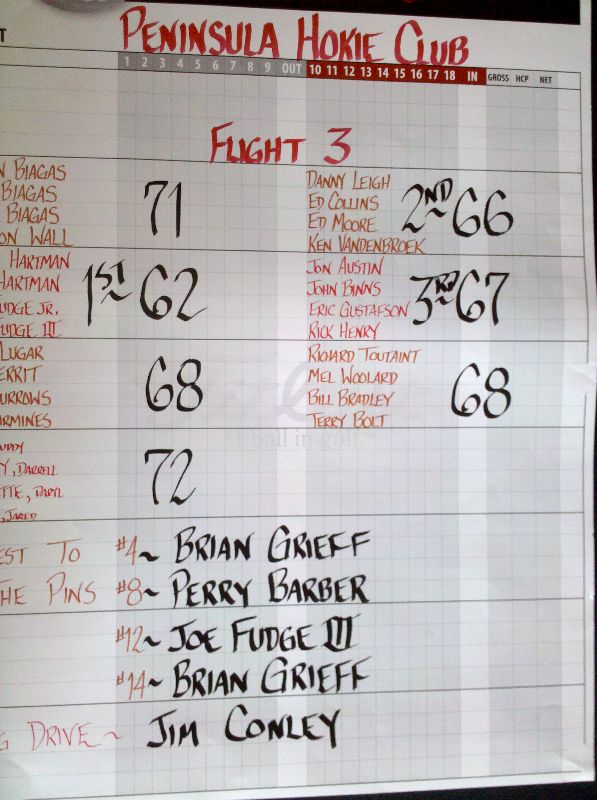 PENINSULA HOKIE CLUB
T 1 2 3 4 5 6 7 8 9 OUT 10 11 12 13 14 15 16 17 18 IN GROSS HCP NET
FLIGHT 3
N BIAGAS
BIAGAS
BIAGAS
ON WALL
71
DANNY LEIGH
ED COLLINS
ED MOORE
KEN VANDENBROEK
2ND~66
HARTMAN
HARTMAN
UDGE JR.
UDGE III
1ST~62
JON AUSTIN
JOHN BINNS
ERIC GUSTAFSON
RICK HENRY
3RD~67
LUGAR
ERRIT
URROWS
ARMINES
68
RICHARD TOUTAINT
MEL WOOLARD
BILL BRADLEY
TERRY BOLT
68
1 ball in golf
UDDY
Y, DARRELL
TTE, DARYL
, JARED
72
EST TO #4~ BRIAN GRIEFF
THE PINS #8~ PERRY BARBER
#12~ JOE FUDGE III
#14~ BRIAN GRIEFF
G DRIVE~ JIM CONLEY